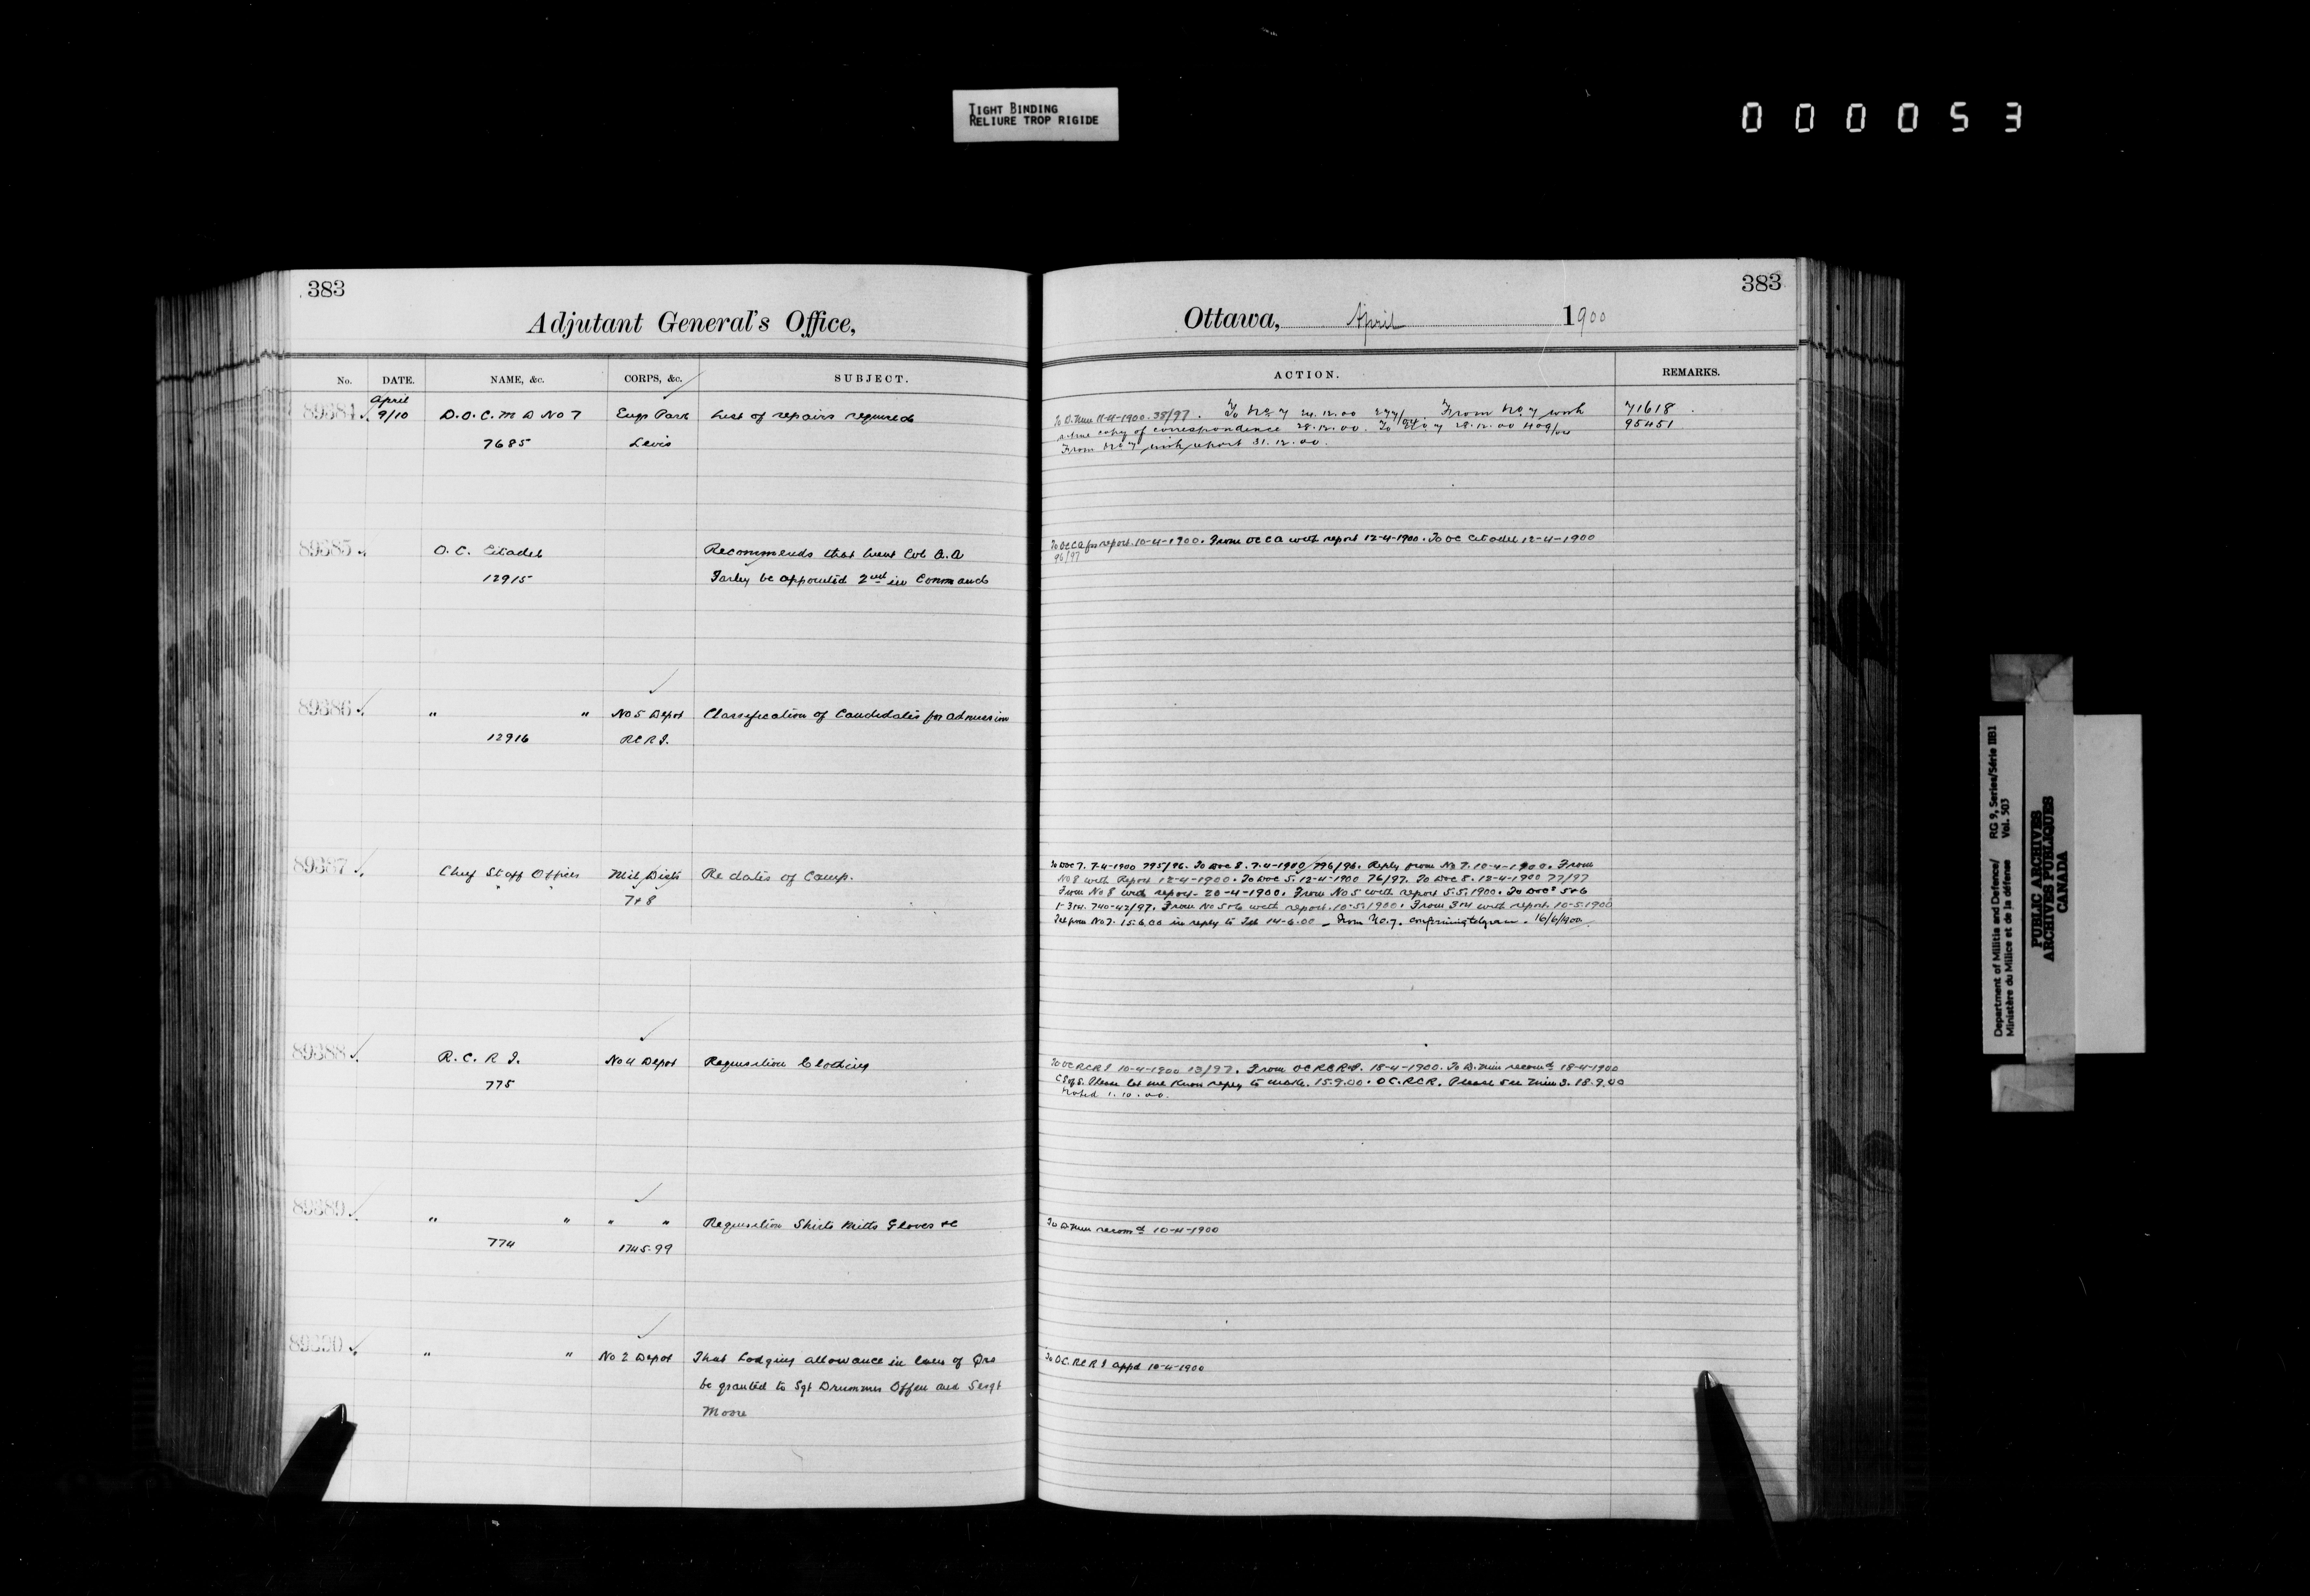 TIGHT BINDING
RELIURE TROP RIGIDE
000053
383
383
Adjutant General's Office,
Ottawa, April 1900
No. DATE. NAME, &c. CORPS, &c. SUBJECT. ACTION. REMARKS.
April
89384 9/10 D.O.C. M D No 7 Engr Park List of repairs required
7685 Levis
To D. Min 11-4-1900. 38/97. To No 7 24.12.00 From No 7 with 71618
copy of correspondence 28.12.00. To No 7 28.12.00 409/00 95451
From No 7 with report 31.12.00.
89385 O. C. Citadel Recommends that Lieut Col O.A
12915 Farley be appointed 2nd in Command
To OC CA for report. 10-4-1900. From OC CA with report 12-4-1900. To OC Citadel 12-4-1900
96/97
89386 " " No 5 Depot Classification of Candidates for admission
12916 RCRI.
89387 Chief Staff Officer Mil Dists Re dates of Camp.
7+8
To DOC 7. 7-4-1900 795/96. To DOC 8. 7-4-1900 796/96. Reply from No 7. 10-4-1900. From
No 8 with Report 12-4-1900. To DOC 5. 12-4-1900 76/97. To DOC 8. 12-4-1900 77/97
From No 8 with report 20-4-1900. From No 5 with report 5.5.1900. To DOCs 5+6
1-3+4. 740-42/97. From No 5+6 with report. 10-5-1900. From 3+4 with report. 10-5-1900
Tel from No 7. 15.6.00 in reply to Tel 14-6.00 _ From No. 7. confirming telegram. 16/6/1900
89388 R. C. R I. No 4 Depot Requisition Clothing
775
To OC RCRI 10-4-1900 13/97. From OC RCRI. 18-4-1900. To D. Min recomd 18-4-1900
Please let me know reply to 15.9.00. OC. RCR. Please see Min 3. 18.9.00
Noted 1.10.00.
89389 " " " " Requisition Shirts Mitts Gloves &c
774 1745.99
To D Min recomd 10-4-1900
89390 " " No 2 Depot That Lodging allowance in lieu of Qrs
be granted to Sgt Drummer Offen and Sergt
Moore
To OC. RCRI appd 10-4-1900
Department of Militia and Defence/ RG 9, Series/Série IIB1
Ministère du Milice et de la défense Vol. 503
PUBLIC ARCHIVES
ARCHIVES PUBLIQUES
CANADA